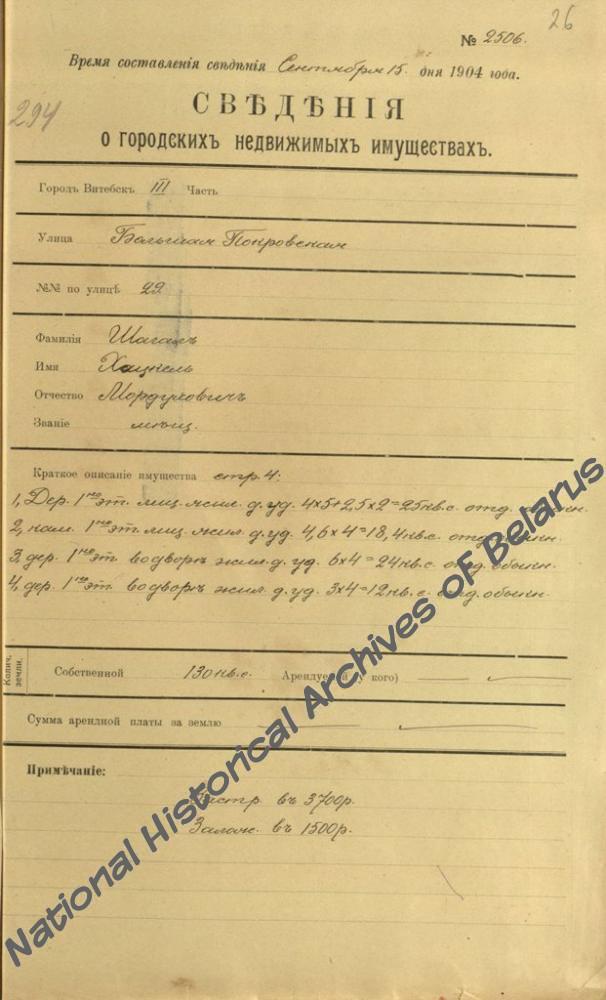 26
№ 2506.
Время составленія свѣдѣнія Сентября 15 дня 1904 года.
294
СВѢДѢНІЯ
о городскихъ недвижимыхъ имуществахъ.
Городъ Витебскъ III Часть
Улица Большая Покровская
№№ по улицѣ 29
Фамилія Шагалъ
Имя Хацкель
Отчество Мордуховичъ
Званіе мѣщ.
Краткое описаніе имущества стр. 4:
1, Дер. 1 эт. лиц. жил. д. уд. 4×5+2,5×2=25 кв. с. отд.
2, кам. 1 эт. лиц. жил. д. уд. 4,6×4=18,4 кв. с. отд.
3, дер. 1 эт. во дворѣ жил. д. уд. 6×4=24 кв. с. отд. обыкн.
4, дер. 1 эт. во дворѣ жил. д. уд. 3×4=12 кв. с. отд. обыкн.
Колич. земли.
Собственной 130 кв. с. Арендуемой (у кого)
Сумма арендной платы за землю
Примѣчаніе:
въ 3700 р.
Залож. въ 1500 р.
National Historical Archives of Belarus